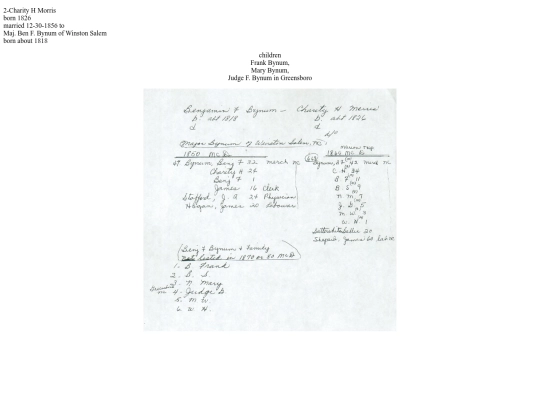 2-Charity H Morris
born 1826
married 12-30-1856 to
Maj. Ben F. Bynum of Winston Salem
born about 1818
children
Frank Bynum,
Mary Bynum,
Judge F. Bynum in Greensboro
Benjamin F Bynum - Charity H Morris
b abt 1818 b abt 1826
d d
Major Bynum of Winston Salem, NC
1850 Mc Co
1860 Mc Co
Bynum, Benj F 32 merch nc
Charity H 24
Benj F 1
James 16 Clerk
Stafford, J. A. 24 Physician
James 20 Labourer
Bynum, 42 merch nc
C. H. 34
B. F. 11
B. S. 9
N. M. 7
J. D. 5
M. W. 3
W. H. 1
Sallie 20
James 60
(Benj F Bynum & Family
not listed in 1870 or 80 Mc Co)
1. B. Frank
2. B. S
3. N Mary
4. Judge D.
5. M W
6. W H.